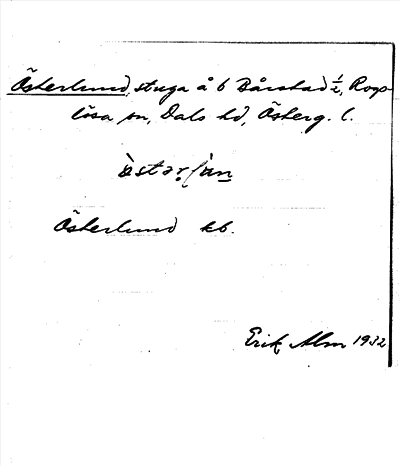 Österlund, stuga å 6 Bårstad 1/2, Rogs-
lösa sn, Dals hd, Österg. l.
Österlund kb.
Erik Alm 1932